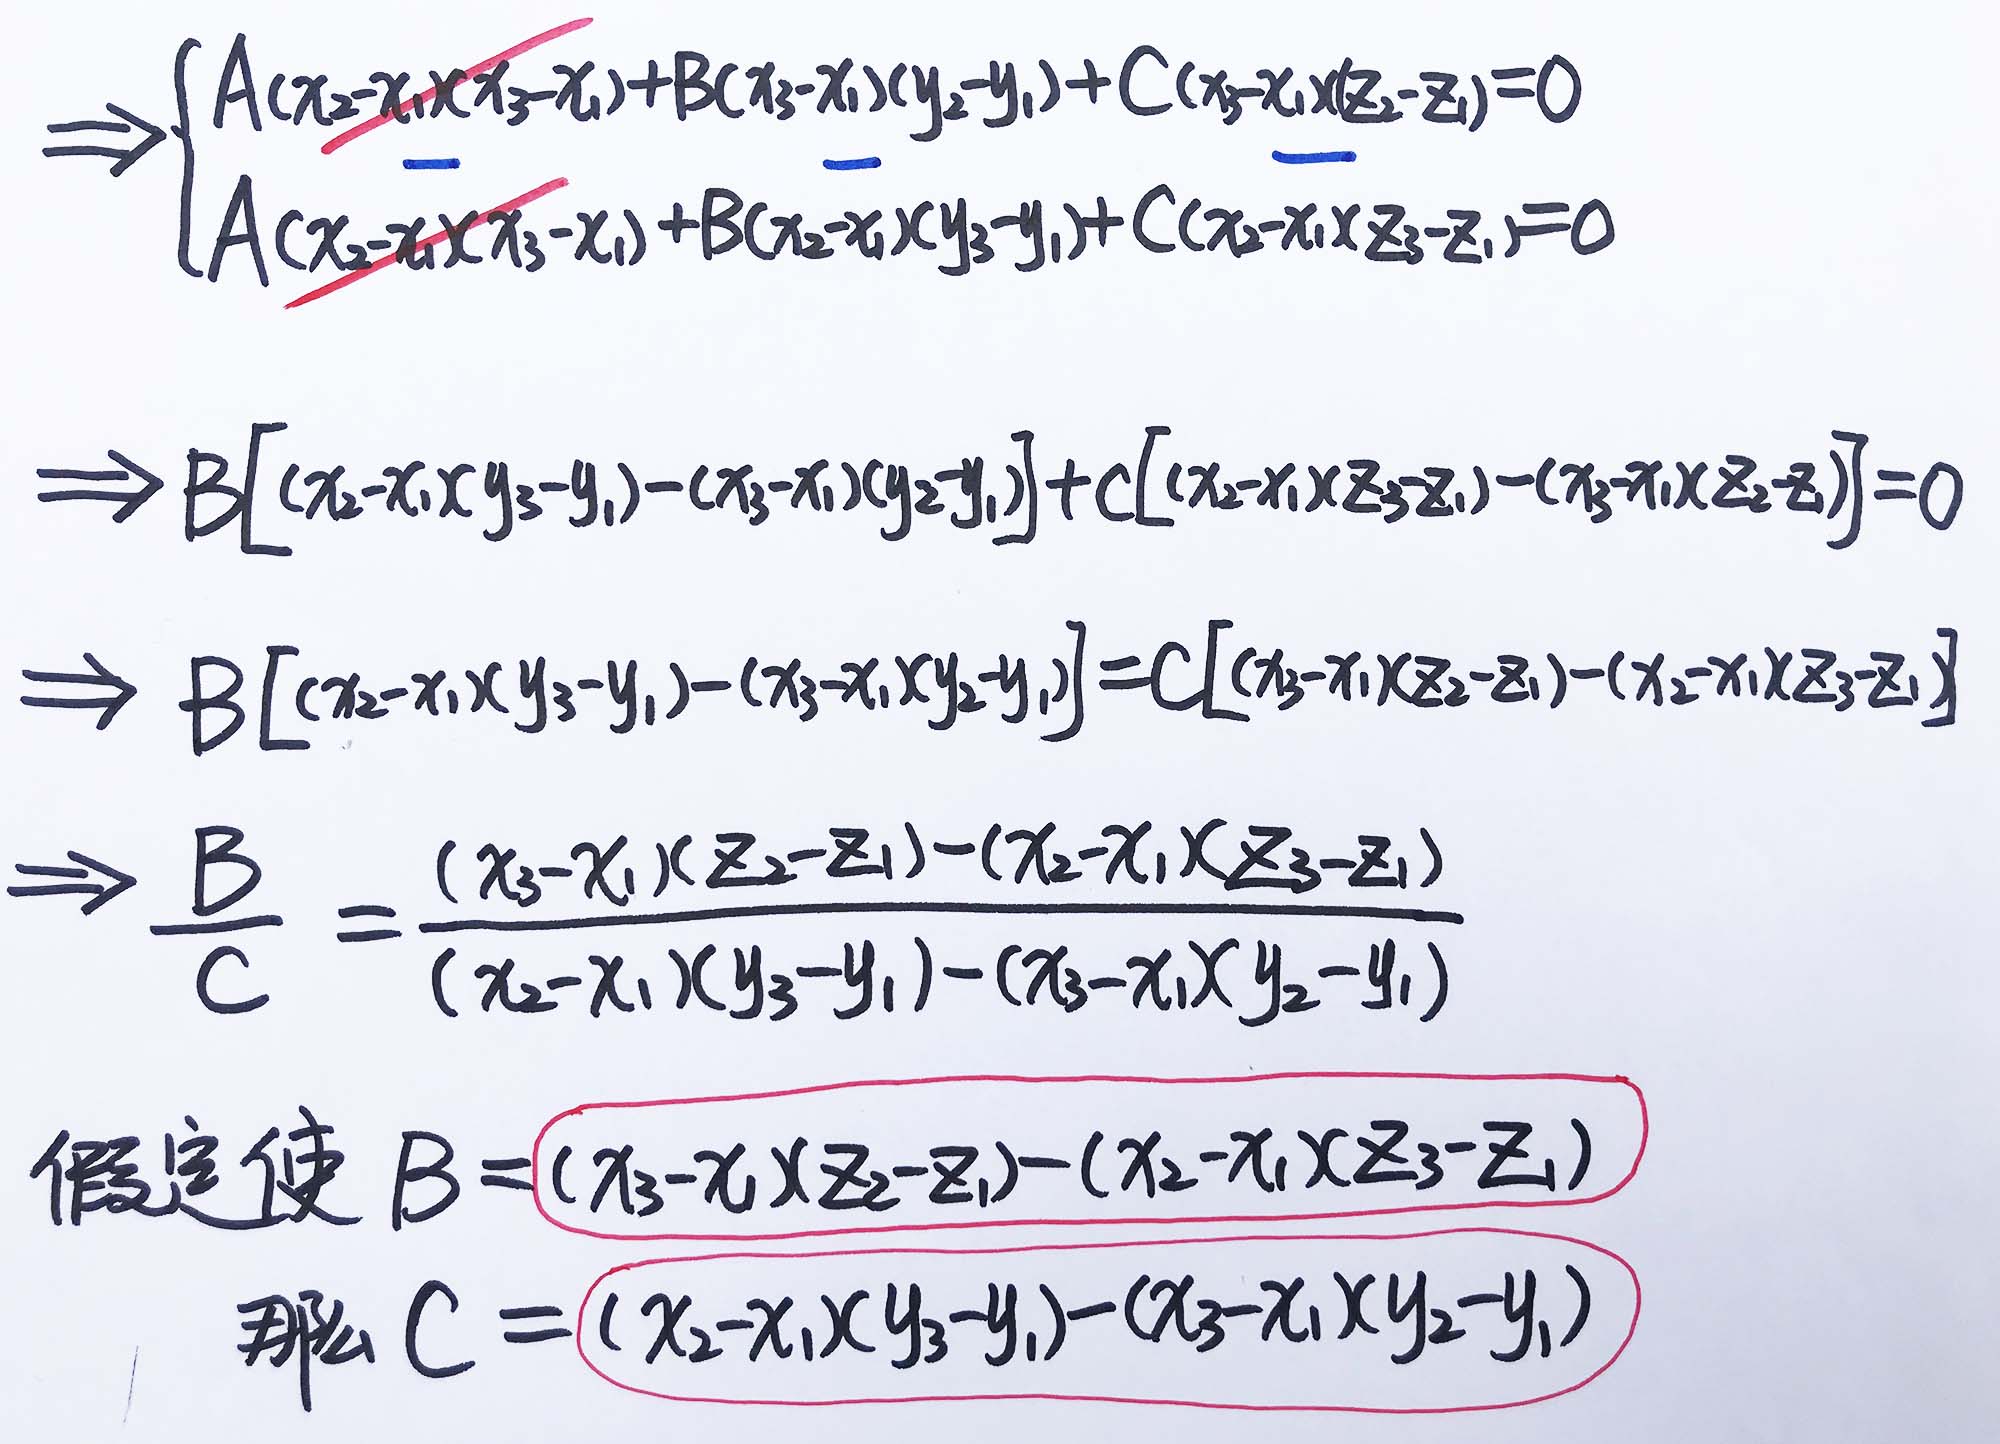 ⇒ { A(x₂-x₁)(x₃-x₁)+B(x₃-x₁)(y₂-y₁)+C(x₃-x₁)(z₂-z₁)=0
A(x₂-x₁)(x₃-x₁)+B(x₂-x₁)(y₃-y₁)+C(x₂-x₁)(z₃-z₁)=0
⇒ B[(x₂-x₁)(y₃-y₁)-(x₃-x₁)(y₂-y₁)]+C[(x₂-x₁)(z₃-z₁)-(x₃-x₁)(z₂-z₁)]=0
⇒ B[(x₂-x₁)(y₃-y₁)-(x₃-x₁)(y₂-y₁)]=C[(x₃-x₁)(z₂-z₁)-(x₂-x₁)(z₃-z₁)]
⇒ B/C = ((x₃-x₁)(z₂-z₁)-(x₂-x₁)(z₃-z₁))/((x₂-x₁)(y₃-y₁)-(x₃-x₁)(y₂-y₁))
假定使 B=(x₃-x₁)(z₂-z₁)-(x₂-x₁)(z₃-z₁)
那么 C=(x₂-x₁)(y₃-y₁)-(x₃-x₁)(y₂-y₁)